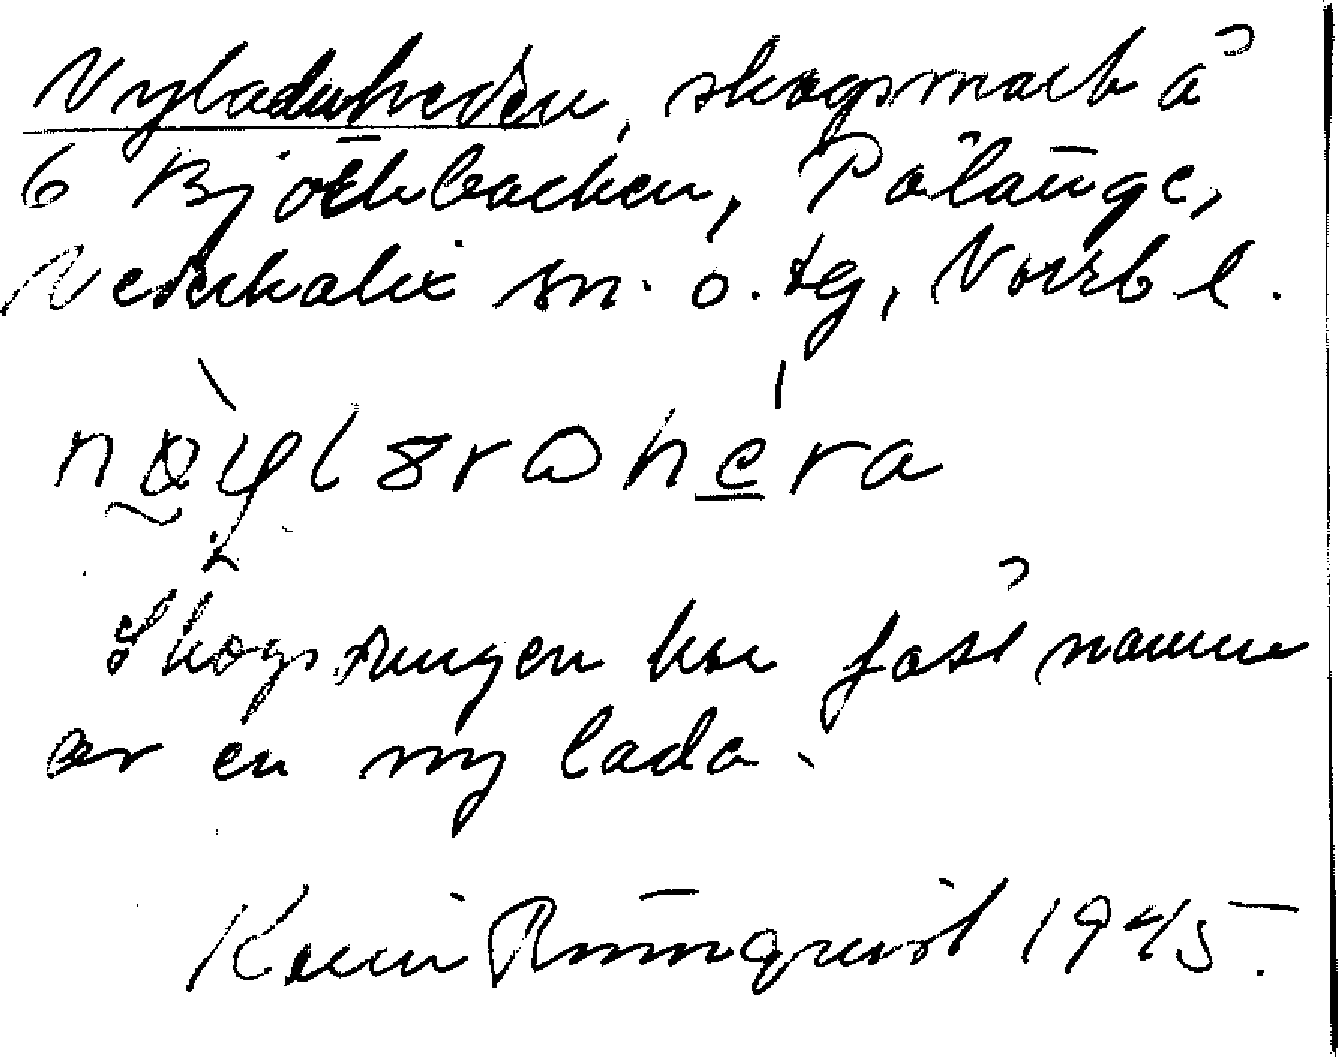 Nyladuheden, skogsmark å
6 Björkbacken, Pålänge,
Nederkalix sn. o. tg, Norrb l.
Skogstungen har fått namn
av en ny lada.
Karin Rönnqvist 1945.